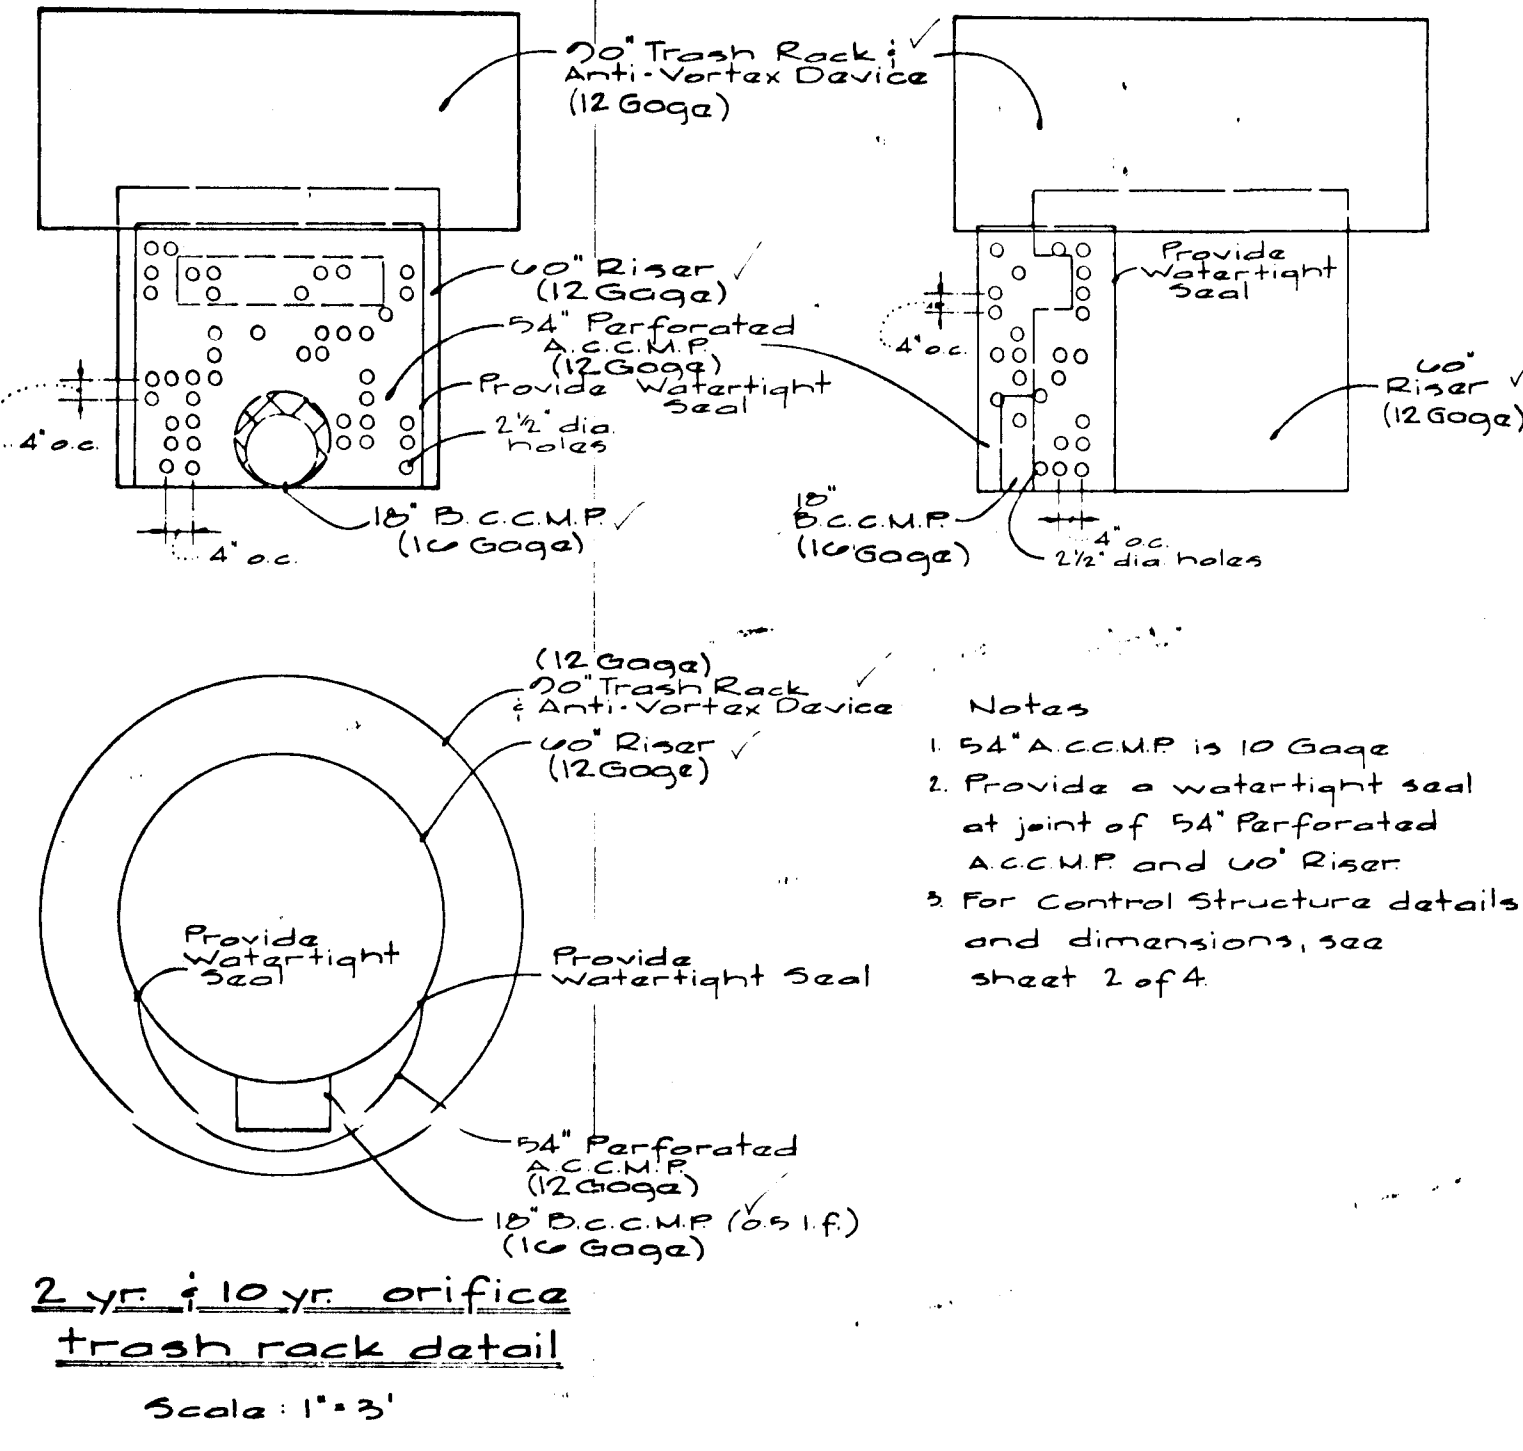 90" Trash Rack &
Anti-Vortex Device
(12 Gage)
60" Riser
(12 Gage)
54" Perforated
A.C.C.M.P.
(12 Gage)
Provide Watertight
Seal
2 1/2" dia.
holes
4" o.c.
18" B.C.C.M.P.
(16 Gage)
4" o.c.
Provide
Watertight
Seal
4" o.c.
60"
Riser
(12 Gage)
18"
B.C.C.M.P.
(16 Gage)
4" o.c.
2 1/2" dia. holes
(12 Gage)
90" Trash Rack
& Anti-Vortex Device
60" Riser
(12 Gage)
Provide
Watertight
Seal
Provide
Watertight Seal
54" Perforated
A.C.C.M.P.
(12 Gage)
18" B.C.C.M.P. (0.5 l.f.)
(16 Gage)
Notes
1. 54" A.C.C.M.P. is 10 Gage
2. Provide a watertight seal
at joint of 54" Perforated
A.C.C.M.P. and 60" Riser.
3. For Control Structure details
and dimensions, see
sheet 2 of 4.
2 yr. & 10 yr. orifice
trash rack detail
Scale: 1" = 3'